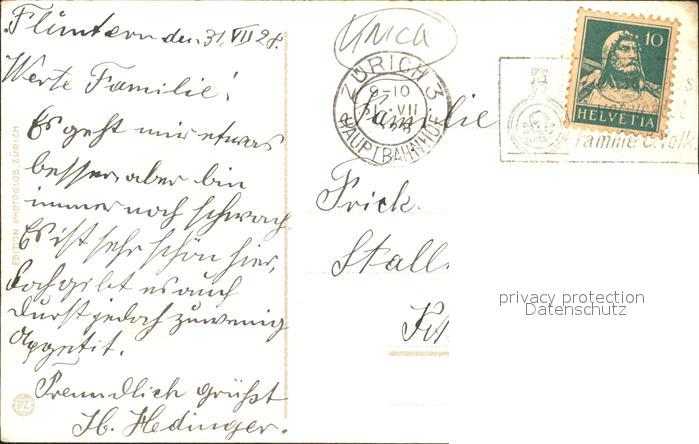 Flüntern den 31. VII 28.
Werte Familie!
Es geht mir etwas
besser, aber bin
immer noch schwach
Es ist sehr schön hier,
doch gibt es auch
Durst jedoch zuwenig
Appetit.
Freundlich grüsst
H. Hedinger.
EDITION PHOTOGLOB, ZÜRICH
PZ
Unica
ZÜRICH 3
9-10
VII
HAUPTBAHNHOF
10
HELVETIA
Familie
Frick.
Stall
privacy protection
Datenschutz